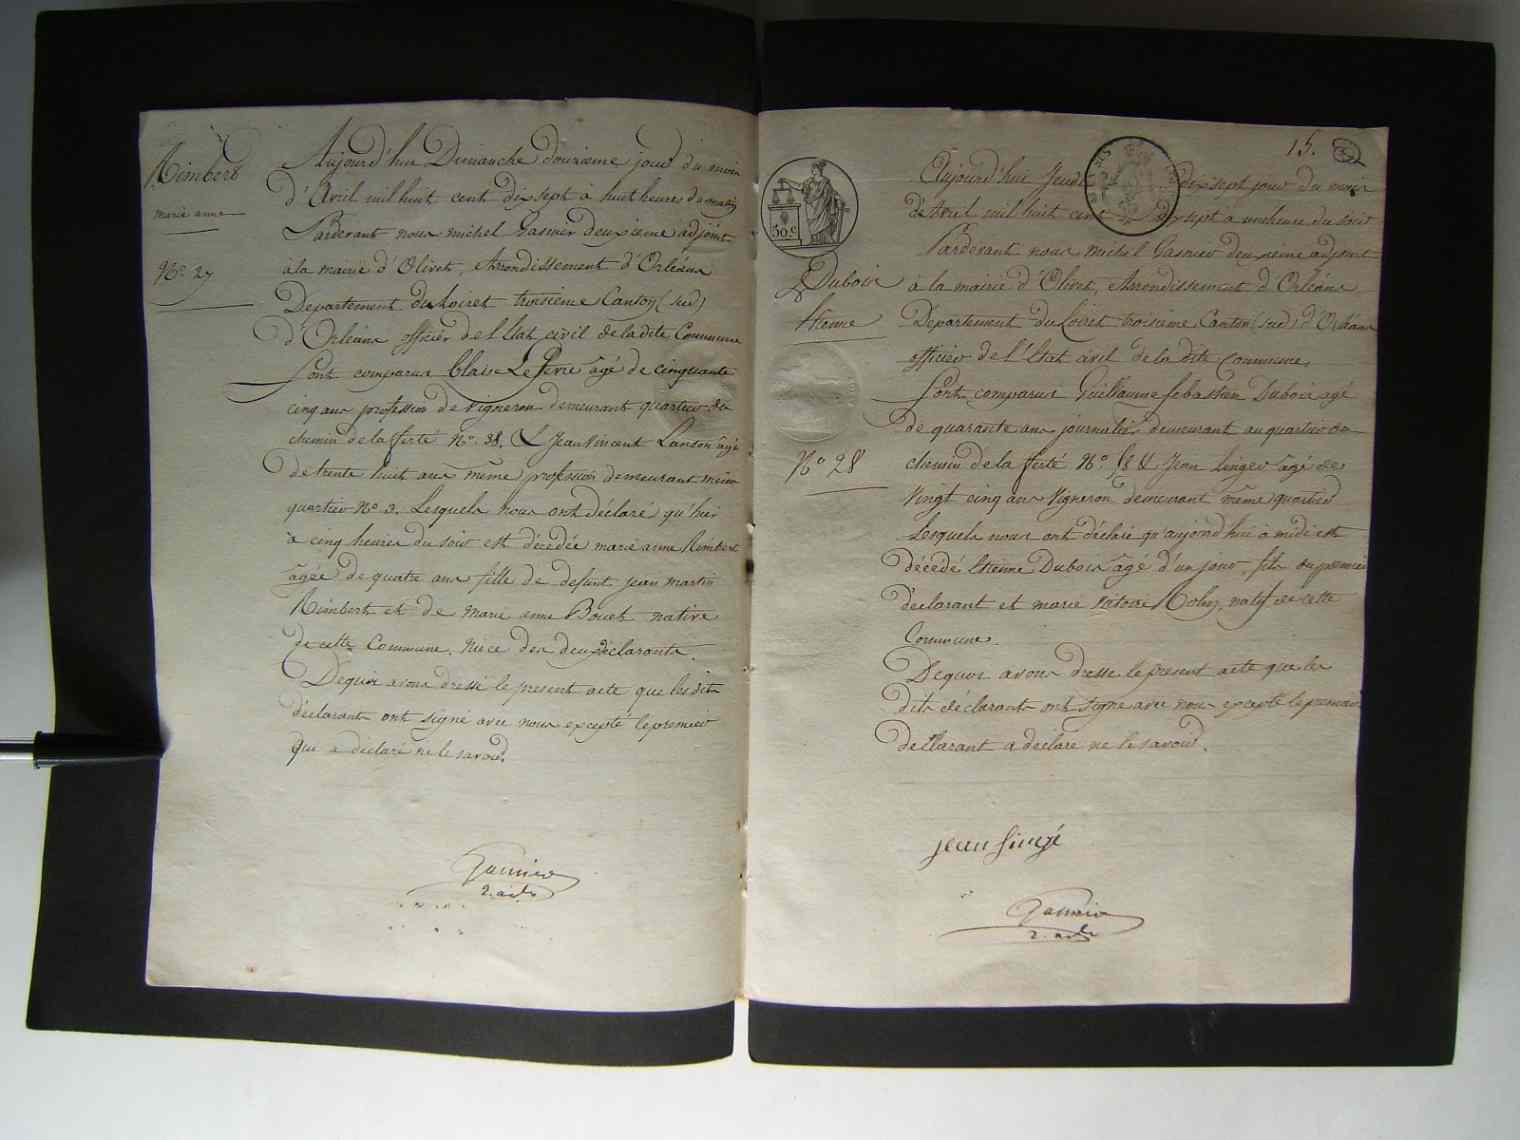 Rimbert
marie anne
N° 27
Aujourd'hui Dimanche douzieme jour du mois
d'Avril mil huit cent dix sept à huit heures du matin
Pardevant nous michel Gasnier deuxieme adjoint
à la mairie d'Olivet, Arrondissement d'Orléans
Departement du Loiret troisieme Canton (sud)
d'Orléans officier de l'Etat civil de la dite Commune
Sont comparus blaise Le Pere âgé de cinquante
cinq ans profession de Vigneron demeurant quartier du
chemin de la ferté N° 38. & Jean Vincent Lanson âgé
de trente huit ans même profession demeurant même
quartier N° 3. Lesquels nous ont déclaré qu'hier
à cinq heures du soir est décédée marie anne Rimbert
âgée de quatre ans fille de defunt jean martin
Rimbert et de marie anne Boues native
de cette Commune. niece des deux déclarants.
Dequoi avons dressé le present acte que les dits
déclarants ont signé avec nous excepté le premier
qui a déclaré ne le savoir.
Gasnier
2. adt
15.
50 c
Dubois
Etienne
N° 28
Aujourd'hui Jeudi dix sept jour du mois
d'Avril mil huit cent dix sept à une heure du soir
Pardevant nous michel Gasnier deuxieme adjoint
à la mairie d'Olivet, Arrondissement d'Orléans
Département du Loiret troisieme Canton (sud) d'Orléans
officier de l'Etat civil de la dite Commune,
Sont comparus Guillaume sebastien Dubois agé
de quarante ans journalier demeurant au quartier du
chemin de la ferté N° & Jean Singer âgé de
Vingt cinq ans Vigneron demeurant même quartier
Lesquels nous ont déclaré qu'aujourd'hui à midi est
décédé Etienne Dubois âgé d'un jour, fils du premier
déclarant et marie Victoire natif de cette
Commune.
Dequoi avons dressé le present acte que les
dits déclarants ont signé avec nous excepté le premier
déclarant a déclaré ne le savoir.
jean singé
Gasnier
2. adt